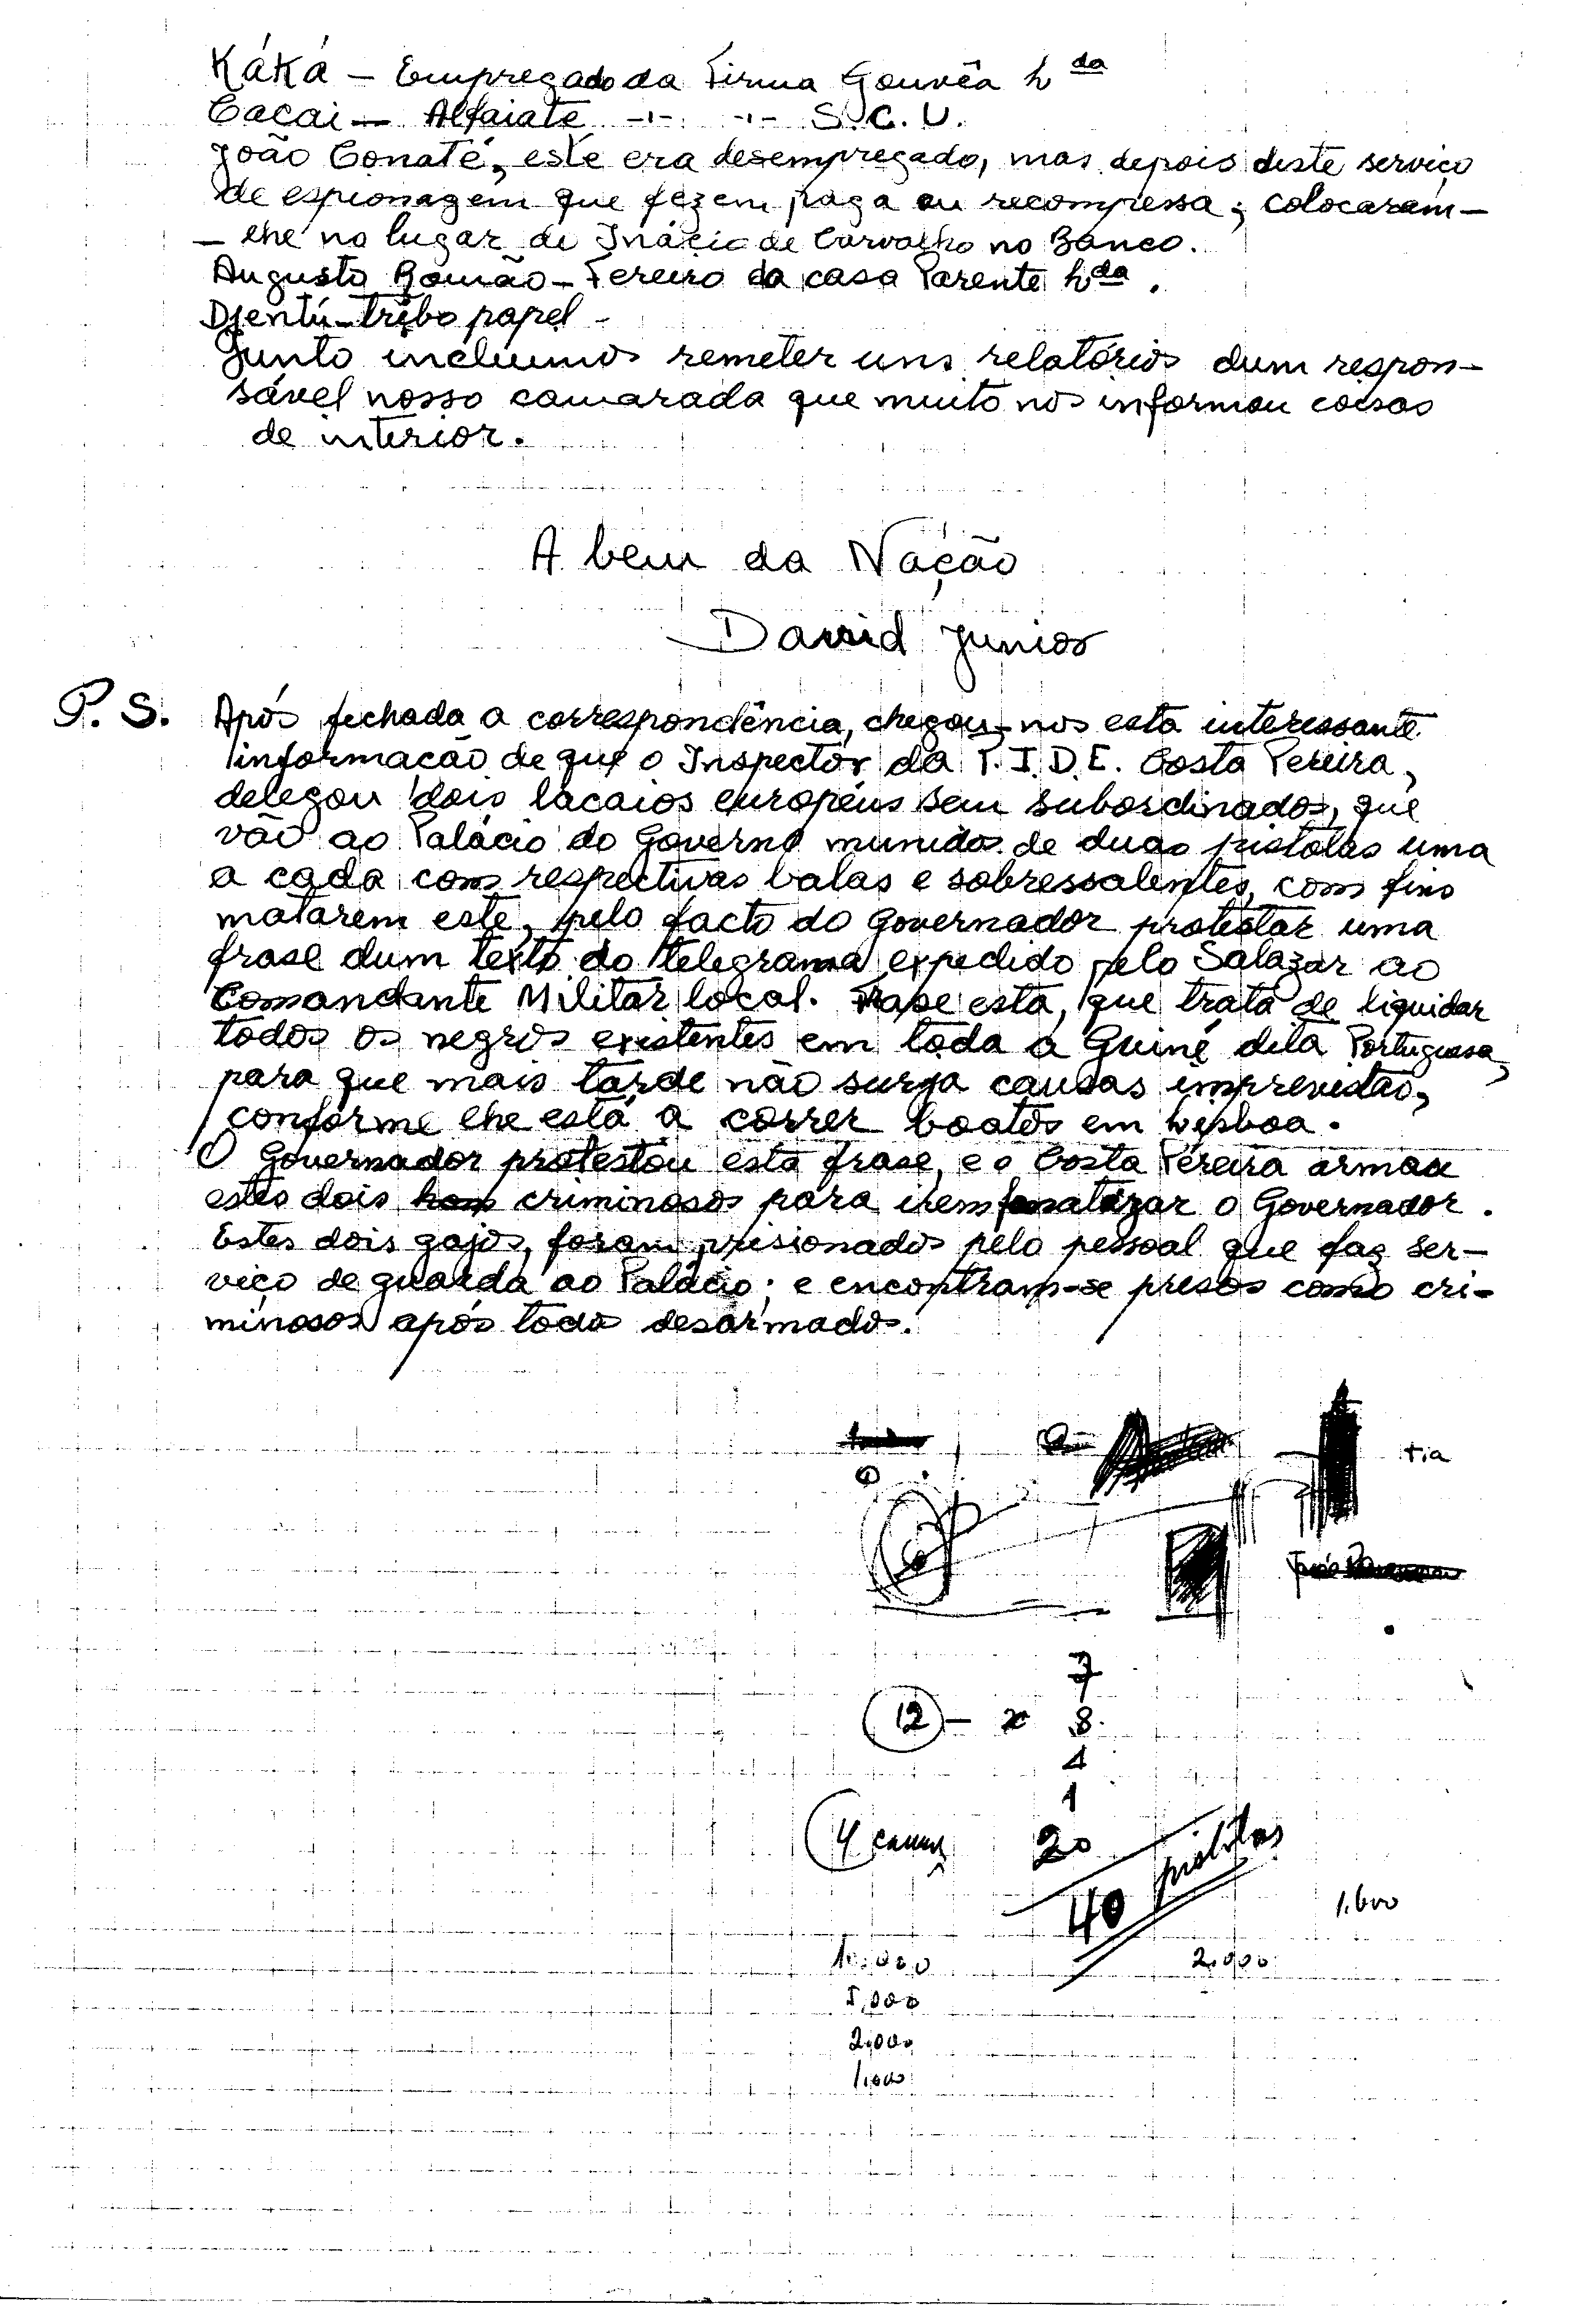 Káká — Empregado da Firma Gouvêa Lda
Cacai — Alfaiate -"- -"- S.C.U.
João Conaté, este era desempregado, mas depois deste serviço
de espionagem que fezem paga ou recompessa; colocaram-
- lhe no lugar de Inácio de Carvalho no Banco.
Augusto Romão - Fereiro da casa Parente Lda.
Djentú - tribo papel -
Junto incluimos remeter uns relatórios dum respon-
sável nosso camarada que muito nos informou coisas
de interior.
A bem da Nação
David Junior
P. S. Após fechada a correspondência, chegou-nos esta interessante
informacão de que o Inspector da P.I.D.E. Costa Pereira,
delegou dois lacaios européus sem subordinados, que
vão ao Palácio do Governo munidos de duas pistolas uma
a cada com respectivas balas e sobressalentes, com fins
matarem este, pelo facto do Governador protestar uma
frase dum texto do telegrama expedido pelo Salazar ao
Comandante Militar local. Frase esta, que trata de liquidar
todos os negros existentes em toda a Guiné dita Portuguesa,
para que mais tarde não surja causas imprevistas,
conforme lhe está a correr boatos em Lisboa.
O Governador protestou esta frase, e o Costa Pereira armou
estes dois criminosos para irem fanatizar o Governador.
Estes dois gajos, foram prisionados pelo pessoal que faz ser-
viço de guarda ao Palácio; e encontram-se presos como cri-
minosos após todo desarmados.
tia
7
12 - x 8
4
1
4 20
40 pistolas
1.600
10.000 2.000
5.000
2.000
1.000